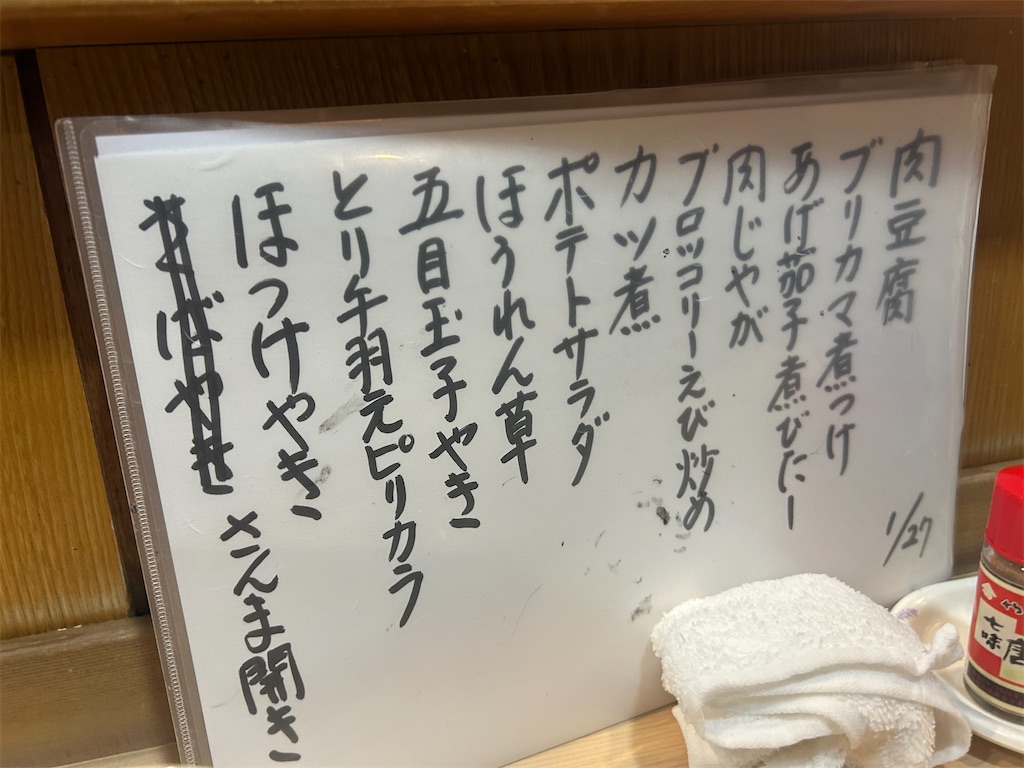 肉豆腐
ブリカマ煮つけ
あげ茄子煮びたー
肉じゃが
ブロッコリーえび炒め
カツ煮
ポテトサラダ
ほうれん草
五目玉子やき
とり手羽元ピリカラ
ほっけやき
さばやき
さんま開き
1/27
七味唐